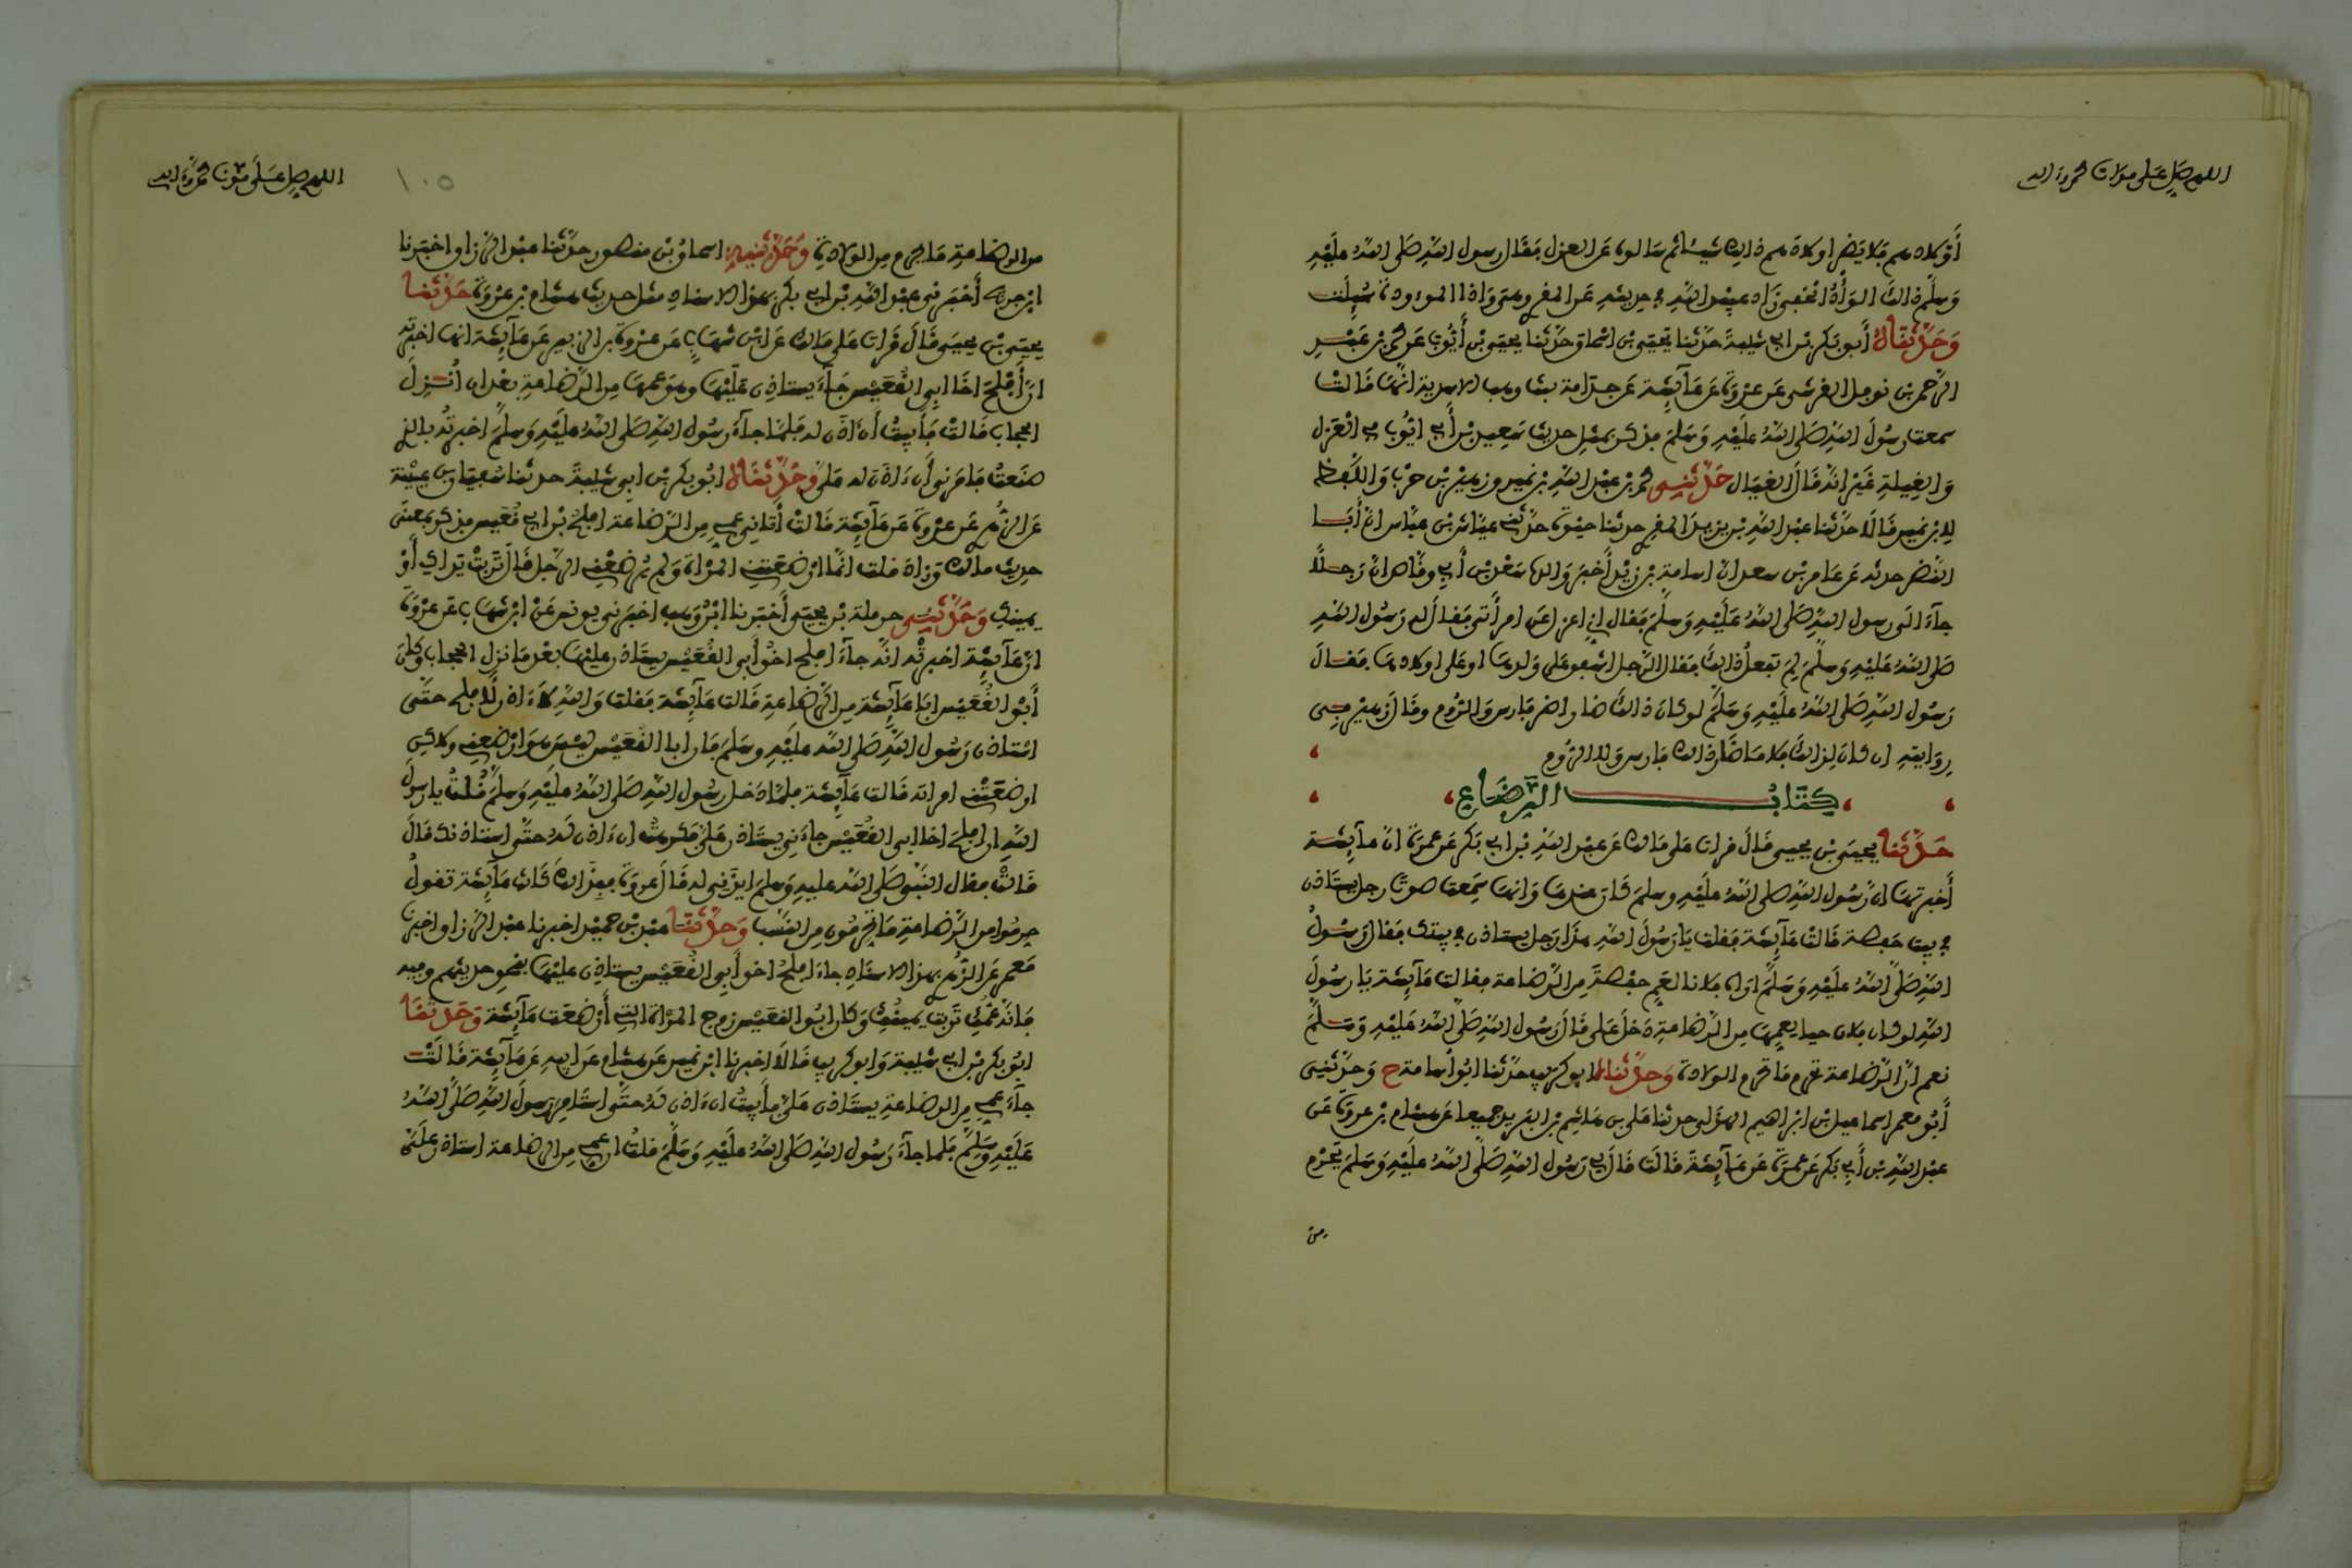 اللهم صل على مولانا محمد وءاله
أولادهم فلا يضر أولادهم ذلك شيئا ثم سألوه عن العزل فقال رسول الله صلى الله عليه
وسلم ذلك الوأد الخفي زاد عبيد الله في حديثه عن المقرئ وهي وإذا الموءودة سئلت
وحدثناه أبو بكر بن أبي شيبة حدثنا يحيى بن إسحاق حدثنا يحيى بن أيوب عن محمد بن عبد
الرحمن بن نوفل القرشي عن عروة عن عائشة عن جدامة بنت وهب الأسدية أنها قالت
سمعت رسول الله صلى الله عليه وسلم فذكر بمثل حديث سعيد بن أبي أيوب في العزل
والغيلة غير أنه قال الغيال حدثني محمد بن عبد الله بن نمير وزهير بن حرب واللفظ
لابن نمير قالا حدثنا عبد الله بن يزيد المقرئ حدثنا حيوة حدثني عياش بن عباس أن أبا
النضر حدثه عن عامر بن سعد أن أسامة بن زيد أخبر والده سعد بن أبي وقاص أن رجلا
جاء إلى رسول الله صلى الله عليه وسلم فقال إني أعزل عن امرأتي فقال له رسول الله
صلى الله عليه وسلم لم تفعل ذلك فقال الرجل أشفق على ولدها أو على أولادها فقال
رسول الله صلى الله عليه وسلم لو كان ذلك ضارا ضر فارس والروم وقال زهير في
روايته إن كان لذلك فلا ما ضار ذلك فارس ولا الروم
كتاب الرضاع
حدثنا يحيى بن يحيى قال قرأت على مالك عن عبد الله بن أبي بكر عن عمرة أن عائشة
أخبرتها أن رسول الله صلى الله عليه وسلم كان عندها وأنها سمعت صوت رجل يستأذن
في بيت حفصة قالت عائشة فقلت يا رسول الله هذا رجل يستأذن في بيتك فقال رسول
الله صلى الله عليه وسلم أراه فلانا لعم حفصة من الرضاعة فقالت عائشة يا رسول
الله لو كان فلان حيا لعمها من الرضاعة دخل علي قال رسول الله صلى الله عليه وسلم
نعم إن الرضاعة تحرم ما تحرم الولادة وحدثناه أبو كريب حدثنا أبو أسامة ح وحدثني
أبو معمر إسماعيل بن إبراهيم الهذلي حدثنا علي بن هاشم بن البريد جميعا عن هشام بن عروة عن
عبد الله بن أبي بكر عن عمرة عن عائشة قالت قال لي رسول الله صلى الله عليه وسلم يحرم
من
اللهم صل على مولانا محمد وءاله
١٠٥
من الرضاعة ما يحرم من الولادة وحدثنيه إسحاق بن منصور حدثنا عبد الرزاق أخبرنا
ابن جريج أخبرني عبد الله بن أبي بكر بهذا الإسناد مثل حديث هشام بن عروة حدثنا
يحيى بن يحيى قال قرأت على مالك عن ابن شهاب عن عروة بن الزبير عن عائشة أنها أخبرته
أن أفلح أخا أبي القعيس جاء يستأذن عليها وهو عمها من الرضاعة بعد أن أنزل
الحجاب قالت فأبيت أن آذن له فلما جاء رسول الله صلى الله عليه وسلم أخبرته بالذي
صنعت فأمرني أن ءاذن له علي وحدثناه أبو بكر بن أبي شيبة حدثنا سفيان بن عيينة
عن الزهري عن عروة عن عائشة قالت أتاني عمي من الرضاعة أفلح بن أبي قعيس فذكر بمعنى
حديث مالك وزاد قلت إنما أرضعتني المرأة ولم يرضعني الرجل قال تربت يداك أو
يمينك وحدثني حرملة بن يحيى أخبرنا ابن وهب أخبرني يونس عن ابن شهاب عن عروة
أن عائشة أخبرته أنه جاء أفلح أخو أبي القعيس يستأذن عليها بعد ما نزل الحجاب وكان
أبو القعيس أبا عائشة من الرضاعة قالت عائشة فقلت والله لا ءاذن لأفلح حتى
أستأذن رسول الله صلى الله عليه وسلم فإن أبا القعيس ليس هو أرضعني ولكن
أرضعتني امرأته قالت عائشة فلما دخل رسول الله صلى الله عليه وسلم قلت يا رسول
الله إن أفلح أخا أبي القعيس جاءني يستأذن علي فكرهت أن ءاذن له حتى أستأذنك قال
قالت فقال النبي صلى الله عليه وسلم ايذني له قال عروة فبذلك كانت عائشة تقول
حرموا من الرضاعة ما تحرمون من النسب وحدثنا عبد بن حميد أخبرنا عبد الرزاق أخبرنا
معمر عن الزهري بهذا الإسناد جاء أفلح أخو أبي القعيس يستأذن عليها بنحو حديثهم وفيه
فإنه عمك تربت يمينك وكان أبو القعيس زوج المرأة التي أرضعت عائشة وحدثنا
أبو بكر بن أبي شيبة وأبو كريب قالا أخبرنا ابن نمير عن هشام عن أبيه عن عائشة قالت
جاء عمي من الرضاعة يستأذن علي فأبيت أن ءاذن له حتى أستأمر رسول الله صلى الله
عليه وسلم فلما جاء رسول الله صلى الله عليه وسلم قلت إن عمي من الرضاعة استأذن علي